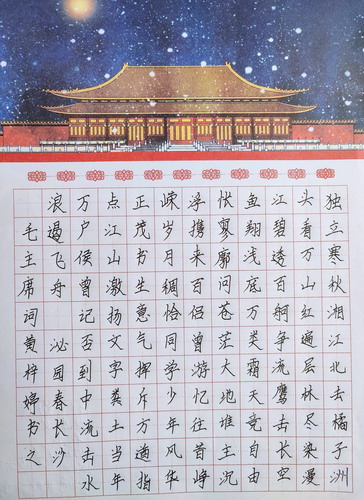 独立寒秋湘江北去橘子洲
头看万山红遍层林尽染漫
江碧透百舸争流鹰击长空
鱼翔浅底万类霜天竞自由
怅寥廓问苍茫大地谁主沉
浮携来百侣曾游忆往昔峥
嵘岁月稠恰同学少年风华
正茂书生意气挥斥方遒指
点江山激扬文字粪土当年
万户侯曾记否到中流击水
浪遏飞舟 泌园春长沙
毛主席词黄梓婷书之